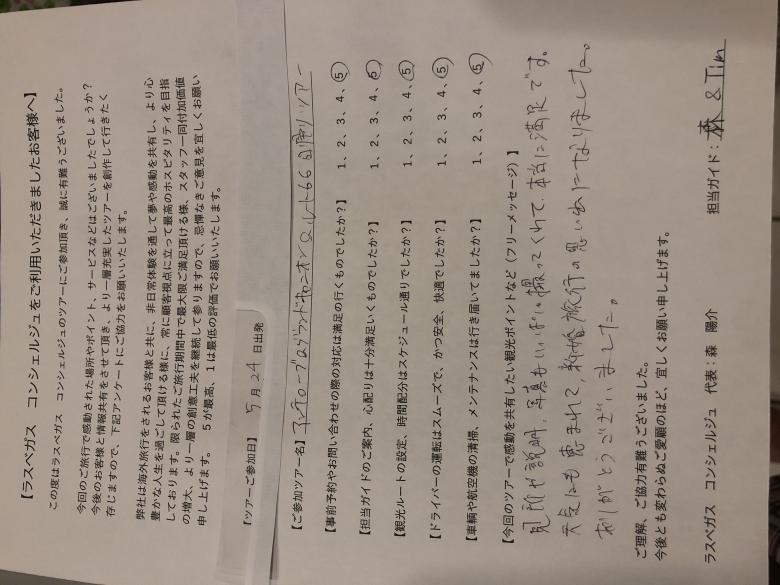 【ラスベガス コンシェルジュをご利用いただきましたお客様へ】
この度はラスベガス コンシェルジュのツアーにご参加頂き、誠に有難うございました。
今回のご旅行で感動された場所やポイント、サービスなどはございましたでしょうか？
今後のお客様と情報共有をさせて頂き、より一層充実したツアーを創作して行きたく
存じますので、下記アンケートにご協力をお願いいたします。
弊社は海外旅行をされるお客様と共に、非日常体験を通して夢や感動を共有し、より心
豊かな人生を過ごして頂ける様に、常に顧客視点に立って最高のホスピタリティを目指
しております。限られたご旅行期間中で最大限ご満足頂ける様、スタッフ一同付加価値
の増大、より一層の創意工夫を継続して参りますので、忌憚なきご意見を宜しくお願い
申し上げます。 5が最高、1は最低の評価でお願いいたします。
【ツアーご参加日】 5月24日出発
【ご参加ツアー名】アンテロープ&グランドキャニオン&ルート66日帰りツアー
【事前予約やお問い合わせの際の対応は満足の行くものでしたか？】 1、2、3、4、5
【担当ガイドのご案内、心配りは十分満足いくものでしたか？】 1、2、3、4、5
【観光ルートの設定、時間配分はスケジュール通りでしたか？】 1、2、3、4、5
【ドライバーの運転はスムーズで、かつ安全、快適でしたか？】 1、2、3、4、5
【車輌や航空機の清掃、メンテナンスは行き届いてましたか？】 1、2、3、4、5
【今回のツアーで感動を共有したい観光ポイントなど（フリーメッセージ）】
見所や説明、写真もいっぱい撮ってくれて、本当に満足です。
天気にも恵まれて、新婚旅行の思い出になりました。
ありがとうございました。
ご理解、ご協力有難うございました。
今後とも変わらぬご愛顧のほど、宜しくお願い申し上げます。
ラスベガス コンシェルジュ 代表：森 陽介 担当ガイド：森 & Tim